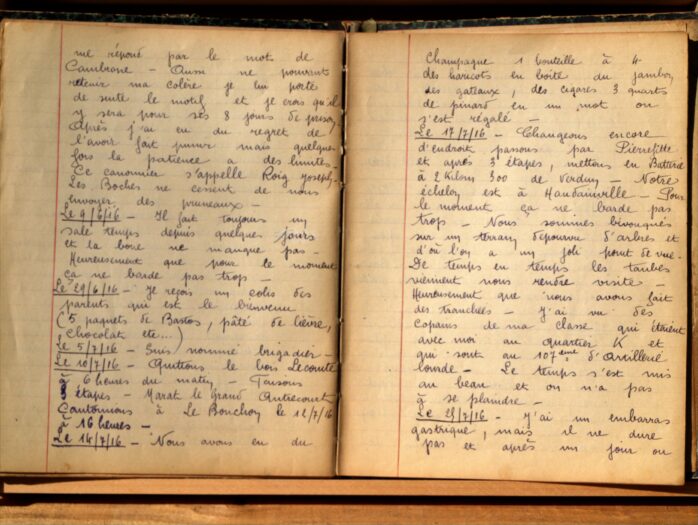 me répond par le mot de
Cambrone – Aussi ne pouvant
retenir ma colère je lui porte
de suite le motif et je crois qu'il
y sera pour ses 8 jours de prison
Après j'ai eu du regret de
l'avoir fait punir mais quelques
fois la patience a des limites –
Ce canonnier s'appelle Roig Joseph –
Les Boches ne cessent de nous
envoyer des pruneaux –
Le 9/6/16 – Il fait toujours un
sale temps depuis quelques jours
et la boue ne manque pas –
Heureusement que pour le moment
ça ne barde pas trop –
Le 29/6/16 – Je reçois un colis des
parents qui est le bienvenu
(5 paquets de Bastos, pâté de lièvre,
chocolats etc...)
Le 5/7/16 – Suis nommé brigadier –
Le 10/7/16 – Quittons le bois Lecomte
à 6 heures du matin – Faisons
3 étapes – Marat le Grand Autrecourt
Cantonnons à Le Bouchon le 12/7/16
à 16 heures –
Le 14/7/16 – Nous avons eu du
Champagne 1 bouteille à 4
des haricots en boîte du jambon
des gateaux, des cigares 3 quarts
de pinard en un mot on
s'est régalé –
Le 17/7/16 – Changeons encore
d'endroit passons par Pierrefitte
et après 3 étapes, mettons en Batterie
à 2 Kilom 300 de Verdun – Notre
échelon est à Haudainville – Pour
le moment ça ne barde pas
trop – Nous sommes bivouaqués
sur un terrain dépourvu d'arbres et
d'où l'on a un joli point de vue –
De temps en temps les taubes
viennent nous rendre visite –
Heureusement que nous avons fait
des tranchées – J'ai vu des
copains de ma classe qui étaient
avec moi au quartier K et
qui sont au 107ème d'Artillerie
lourde – Le temps s'est mis
au beau et on n'a pas
à se plaindre –
Le 25/7/16 – J'ai un embarras
gastrique, mais il ne dure
pas et après un jour ou